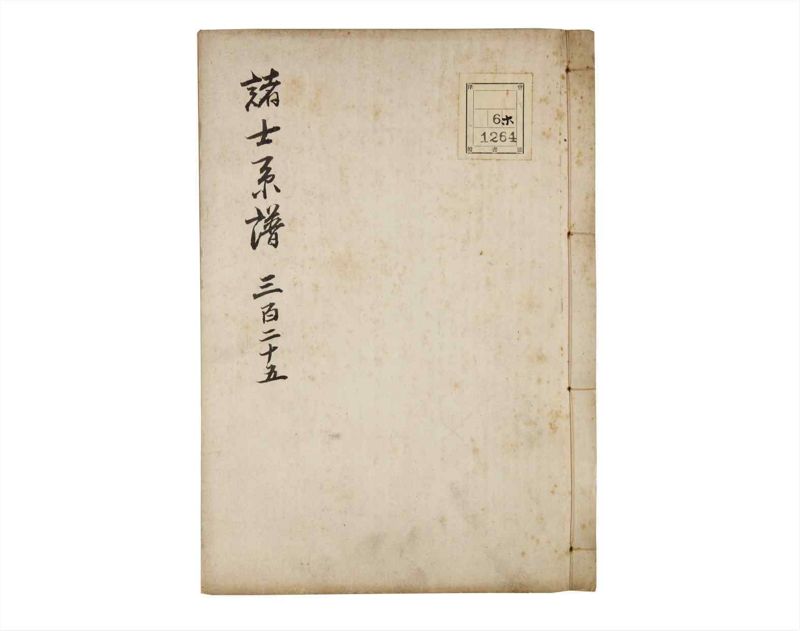 諸士系譜 三百二十五
6ホ
1264